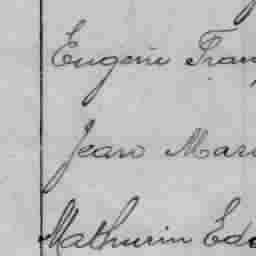 Eugène Fran
Jean Mari
Mathurin Edo